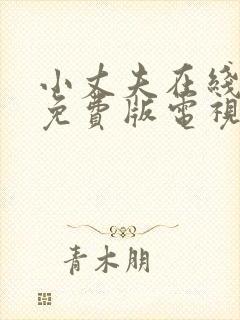 小丈夫在綫
免費版電視
青木朋